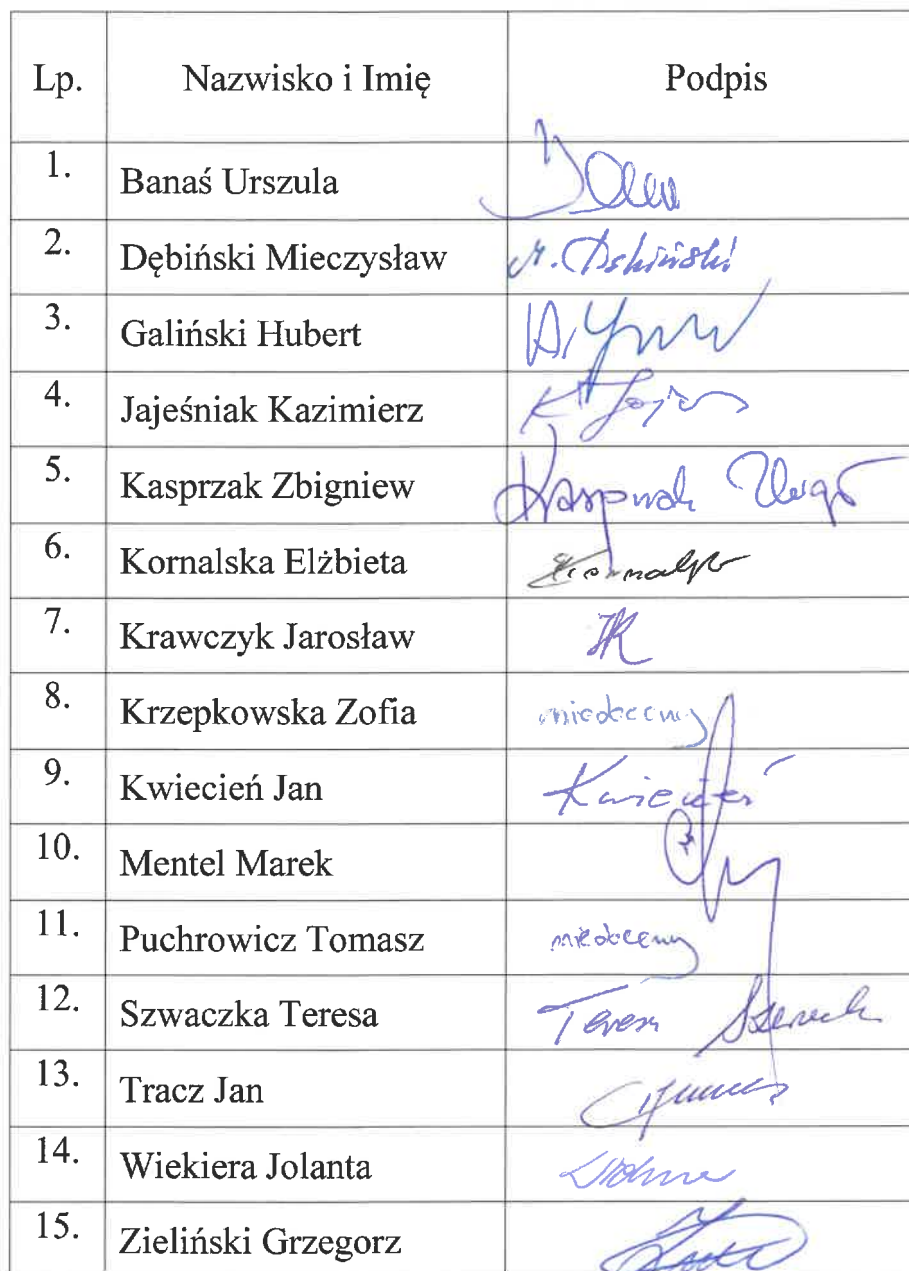 Lp. Nazwisko i Imię Podpis
1. Banaś Urszula
2. Dębiński Mieczysław
3. Galiński Hubert
4. Jajeśniak Kazimierz
5. Kasprzak Zbigniew
6. Kornalska Elżbieta
7. Krawczyk Jarosław
8. Krzepkowska Zofia nieobecny
9. Kwiecień Jan Kwiecień
10. Mentel Marek
11. Puchrowicz Tomasz nieobecny
12. Szwaczka Teresa Teresa
13. Tracz Jan
14. Wiekiera Jolanta
15. Zieliński Grzegorz